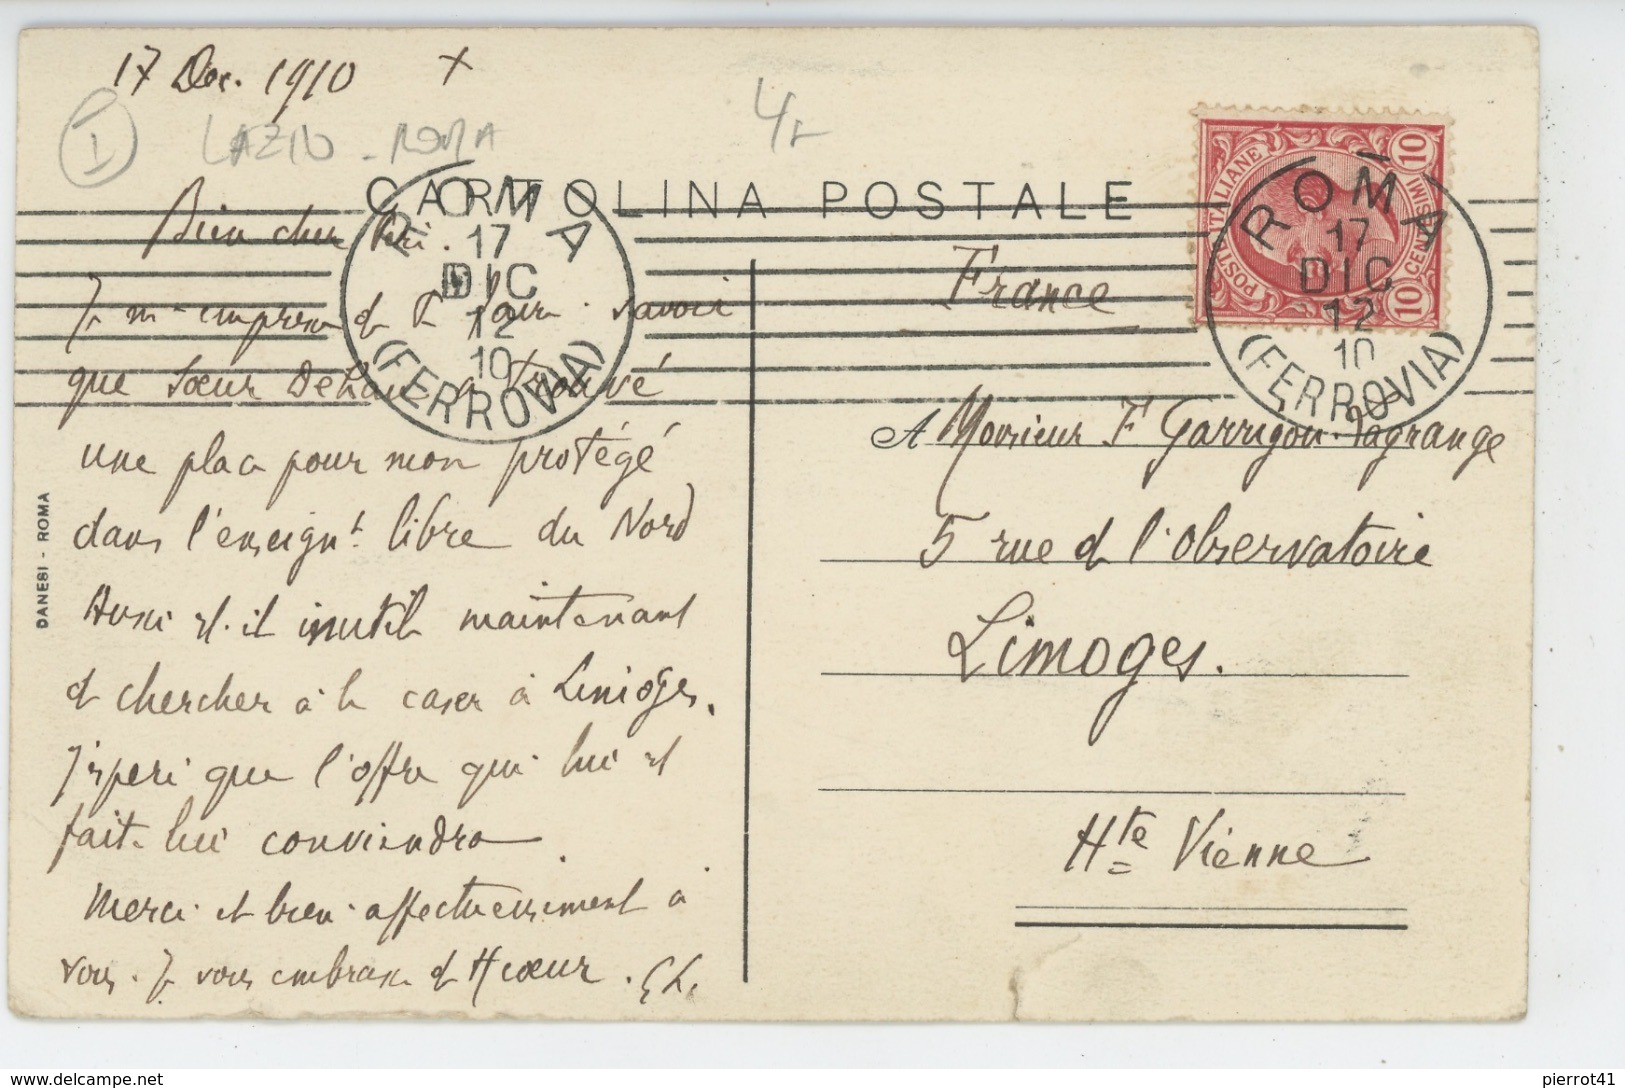 17 Dec. 1910 +
I
LAZIO - ROMA
4
CARTOLINA POSTALE
ROMA
17
DIC
12
10
(FERROVIA)
POSTE ITALIANE
10 CENTESIMI 10
ROMA
17
DIC
12
10
(FERROVIA)
Bien cher
Je m'empresse de savoir
que Sœur trouvé
une place pour mon protégé
dans l'enseignt libre du Nord
Aussi est-il inutile maintenant
de chercher à le caser à Limoges.
J'espère que l'offre qui lui est
faite lui conviendra.
Merci et bien affectueusement à
vous. Je vous embrasse de tt cœur.
DANESI - ROMA
France
A Monsieur F Garrigou-Lagrange
5 rue de l'Observatoire
Limoges.
Hte Vienne
delcampe.net
pierrot41